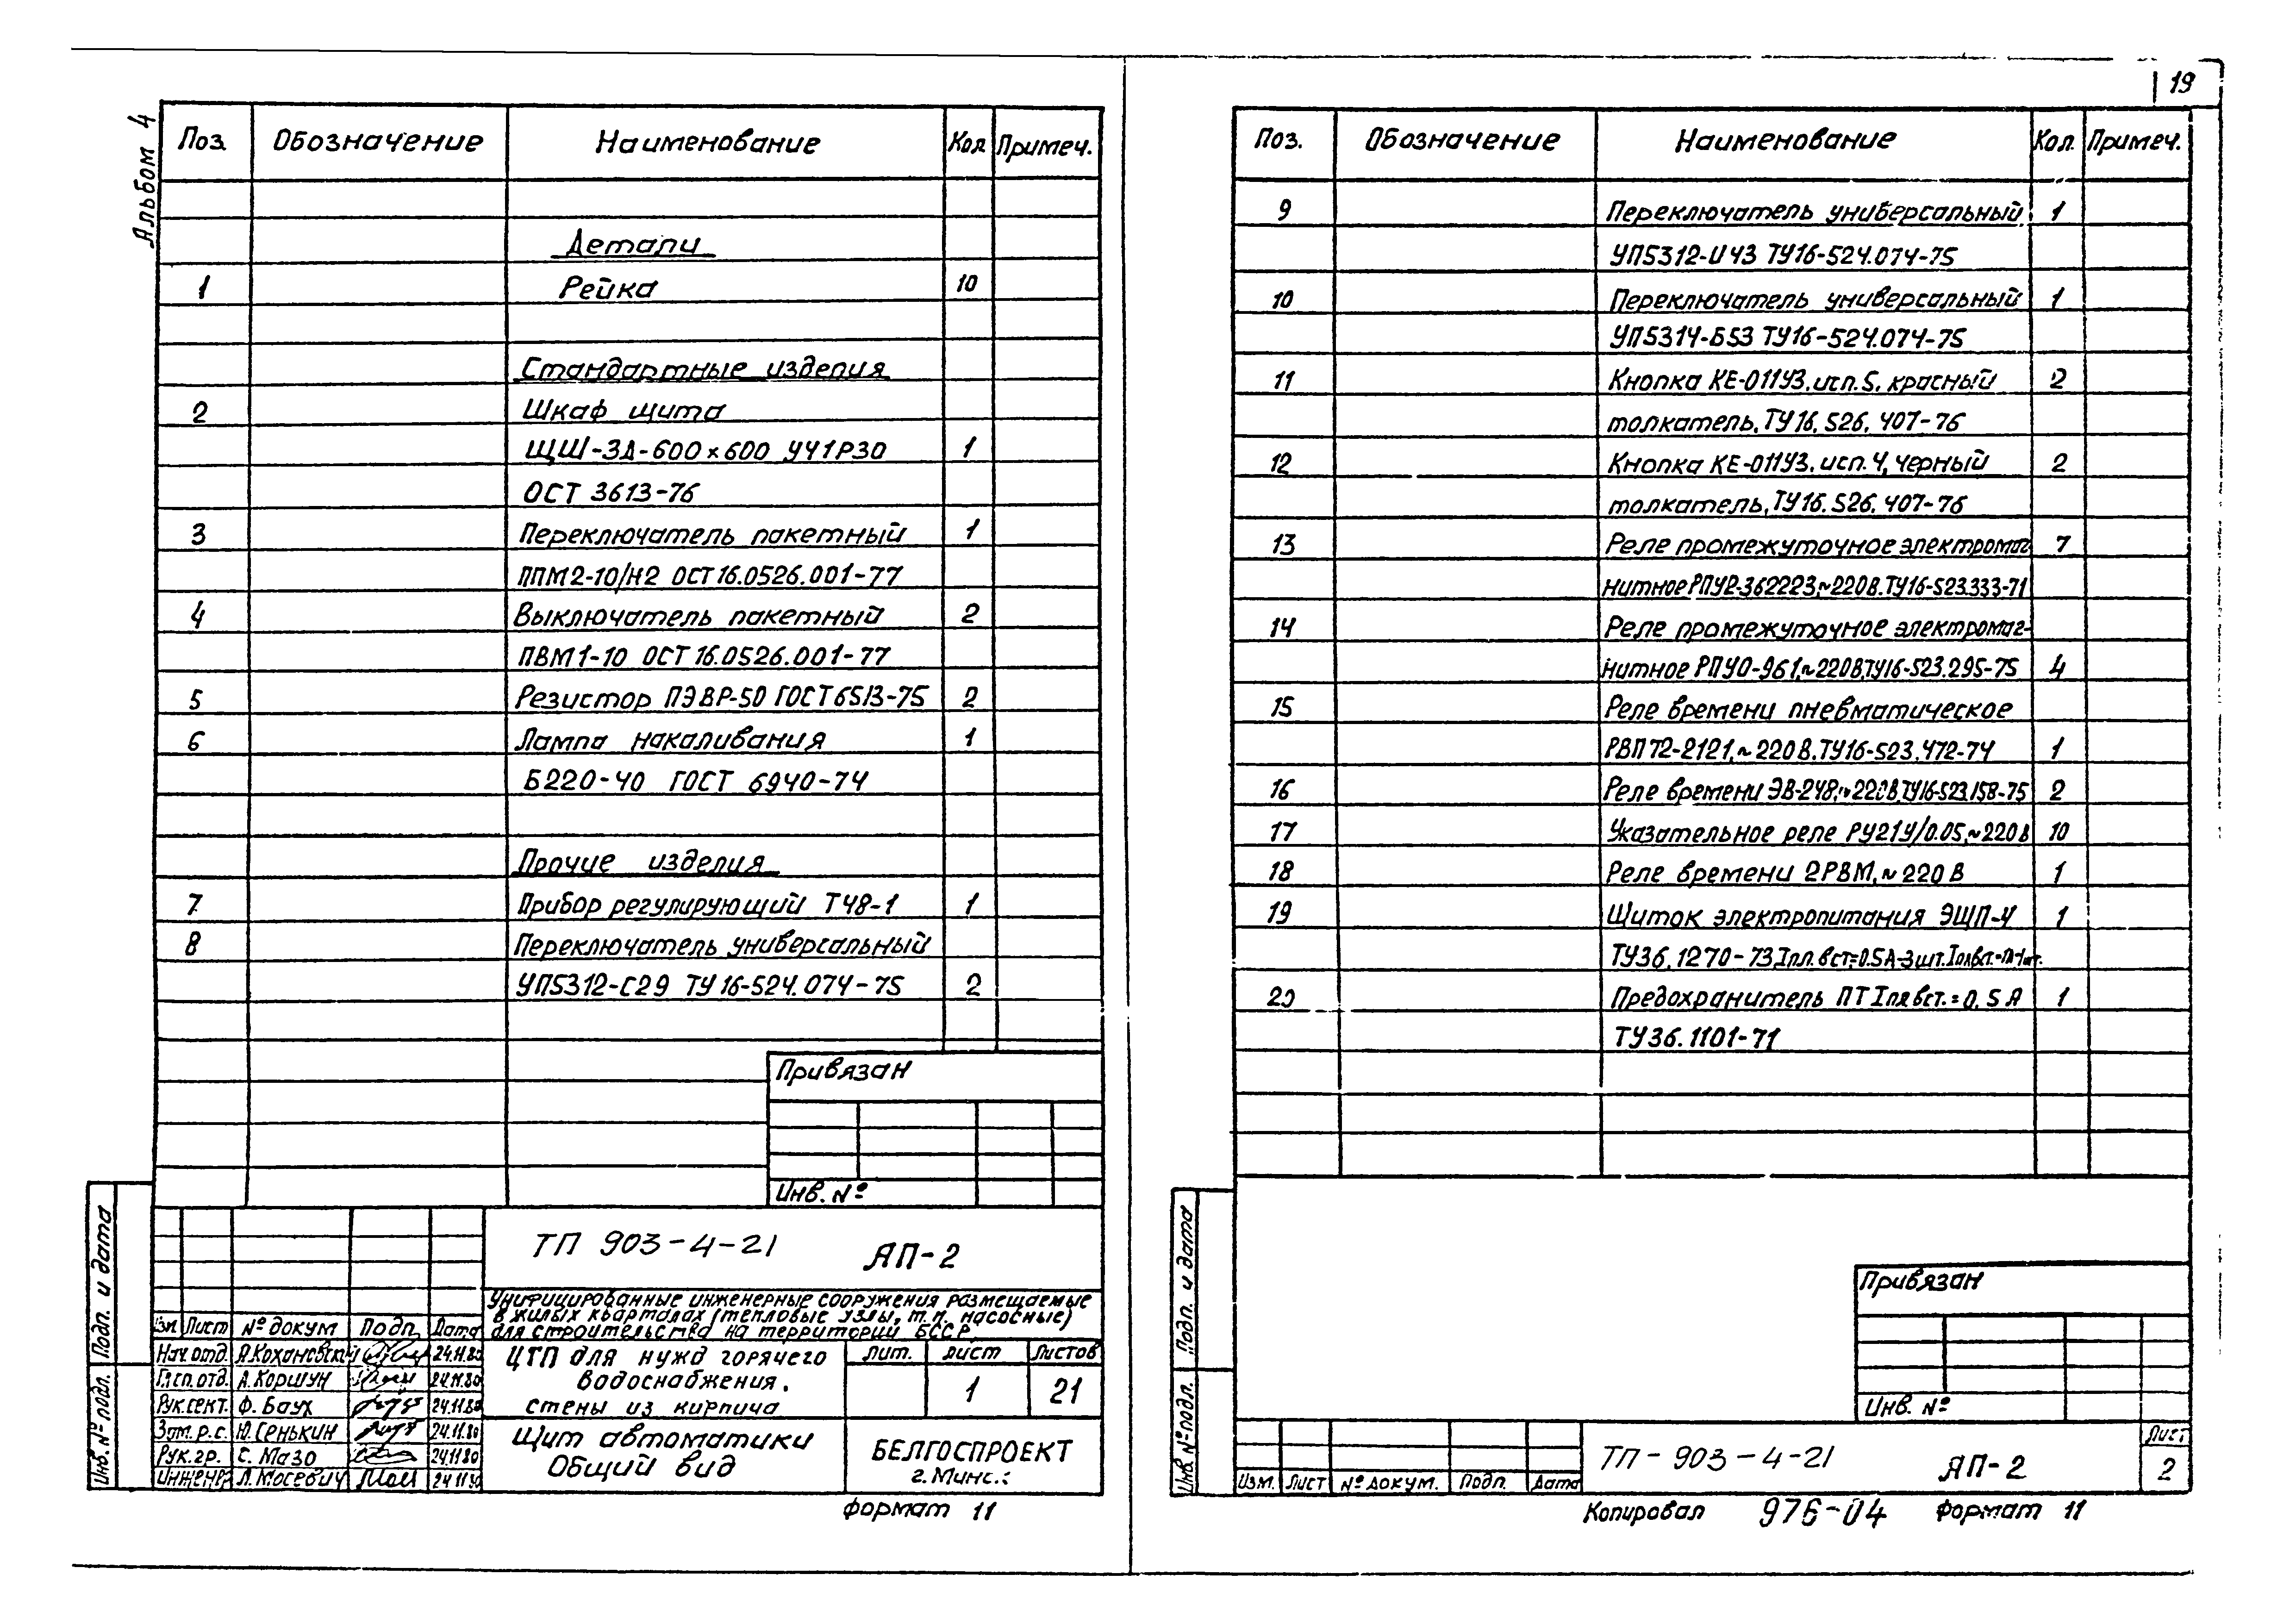 19
Альбом 4
Поз. Обозначение Наименование Кол Примеч.
Детали
1 Рейка 10
Стандартные изделия
2 Шкаф щита
ЩШ-ЗД-600×600 УЧ1РЗ0 1
ОСТ 3613-76
3 Переключатель пакетный 1
ППМ2-10/Н2 ОСТ16.0526.001-77
4 Выключатель пакетный 2
ПВМ1-10 ОСТ16.0526.001-77
5 Резистор ПЭВР-50 ГОСТ6513-75 2
6 Лампа накаливания 1
Б220-40 ГОСТ 6940-74
Прочие изделия
7 Прибор регулирующий Т48-1 1
8 Переключатель универсальный
УП5312-С29 ТУ16-524.074-75 2
Привязан
Инв. №
ТП 903-4-21 АП-2
Унифицированные инженерные сооружения размещаемые
в жилых кварталах (тепловые узлы, т.п. насосные)
для строительства на территории БССР
Изм. Лист № докум Подп Дата
Нач.отд. А.Кохановский 24.11.80
Гл.сп.отд. А.Коршун 24.11.80
Рук.сект. Ф. Баух 24.11.80
Зам. р.с. Ю.Сенькин 24.11.80
Рук.гр. С. Мазо 24.11.80
Инженер Л.Мосевич 24.11.80
ЦТП для нужд горячего
водоснабжения.
стены из кирпича
Лит. Лист Листов
1 21
Щит автоматики
Общий вид
БЕЛГОСПРОЕКТ
г. Минс.:
Формат 11
Подп. и дата
Инв. № подл.
Поз. Обозначение Наименование Кол. Примеч.
9 Переключатель универсальный 1
УП5312-И43 ТУ16-524.074-75
10 Переключатель универсальный 1
УП5314-Б53 ТУ16-524.074-75
11 Кнопка КЕ-011У3. исп.5, красный 2
толкатель, ТУ16.526.407-76
12 Кнопка КЕ-011У3. исп.4, черный 2
толкатель, ТУ16.526.407-76
13 Реле промежуточное электромаг 7
нитное РПУ2-362223,~220В.ТУ16-523.333-71
14 Реле промежуточное электромаг-
нитное РПУ0-961,~220В,ТУ16-523.295-75 4
15 Реле времени пневматическое
РВП72-2121,~220В.ТУ16-523.472-74 1
16 Реле времени ЭВ-248,~220В.ТУ16-523.158-75 2
17 Указательное реле РУ21У/0.05,~220В 10
18 Реле времени 2РВМ,~220В 1
19 Щиток электропитания ЭЩП-4 1
ТУ36.1270-73 Iпл.вст=0.5А-3шт.
20 Предохранитель ПТ Iпл.вст.=0.5А 1
ТУ36.1101-71
Привязан
Инв. №
Подп. и дата
Инв. № подл.
Изм. Лист № докум. Подп. Дата
ТП-903-4-21 АП-2
Лист
2
Копировал 976-04 Формат 11